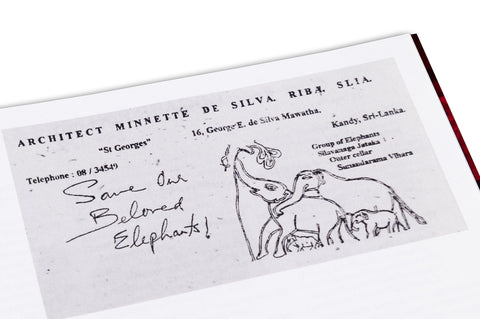 ARCHITECT MINNETTE DE SILVA. RIBA. SLIA.
"St Georges"
16, George E. de Silva Mawatha.
Kandy, Sri-Lanka.
Telephone : 08 / 34549
Group of Elephants
Silavanaga Jataka
Outer cellar
Sunandarama Vihara
Save Our
Beloved
Elephants!